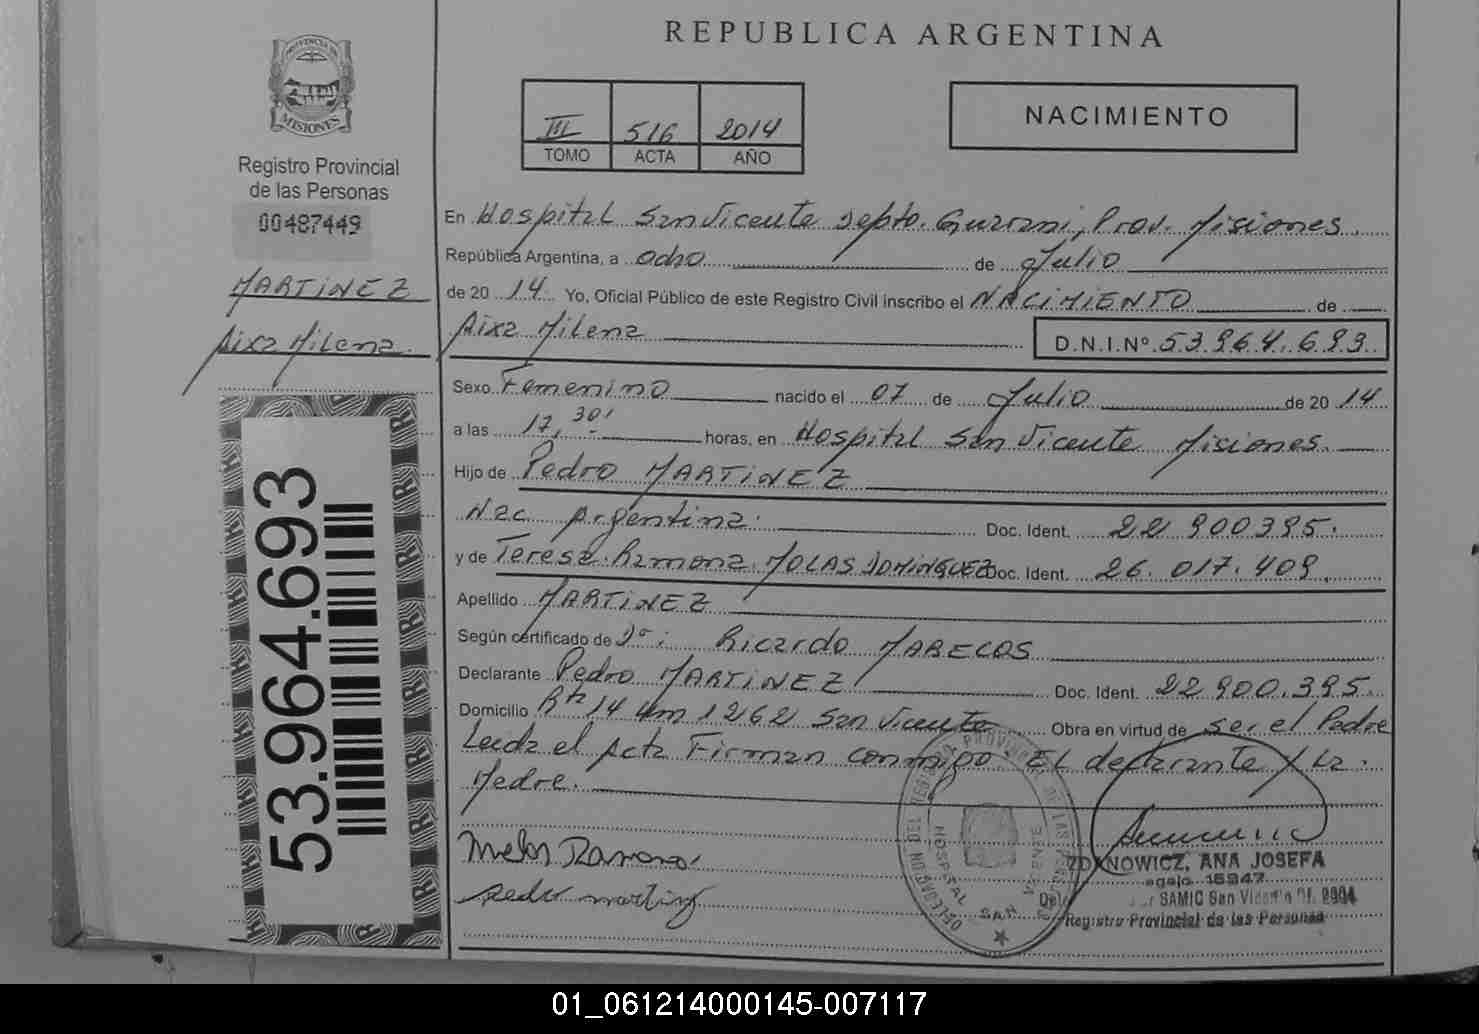 REPUBLICA ARGENTINA
PROVINCIA DE
MISIONES
Registro Provincial
de las Personas
00487449
MARTINEZ
Aixa Milena
53.964.693
III 516 2014
TOMO ACTA AÑO
NACIMIENTO
En Hospital San Vicente Depto. Guarani, Prov. Misiones
República Argentina, a ocho de Julio
de 20 14 Yo, Oficial Público de este Registro Civil inscribo el NACIMIENTO de
Aixa Milena D.N.I.Nº 53.964.693
Sexo Femenino nacido el 07 de Julio de 20 14
a las 17,30' horas, en Hospital San Vicente Misiones.
Hijo de Pedro MARTINEZ
Nac Argentina Doc. Ident. 22 900 395.
y de Teresa Ramona MOLAS DOMINGUEZ Doc. Ident. 26.017.409
Apellido MARTINEZ
Según certificado de Ricardo MARECOS
Declarante Pedro MARTINEZ Doc. Ident. 22 900.395.
Domicilio Rta 14 Km 1262 San Vicente Obra en virtud de ser el Padre
Leida el Acta Firman conmigo El declarante y La
Madre.
Ramona
DELEGACION DEL REGISTRO PROVINCIAL DE LAS PERSONAS
HOSPITAL SAN VICENTE
ZDANOWICZ, ANA JOSEFA
Legajo 15947
SAMIC San Vicente Of. 2904
Registro Provincial de las Personas
01_061214000145-007117